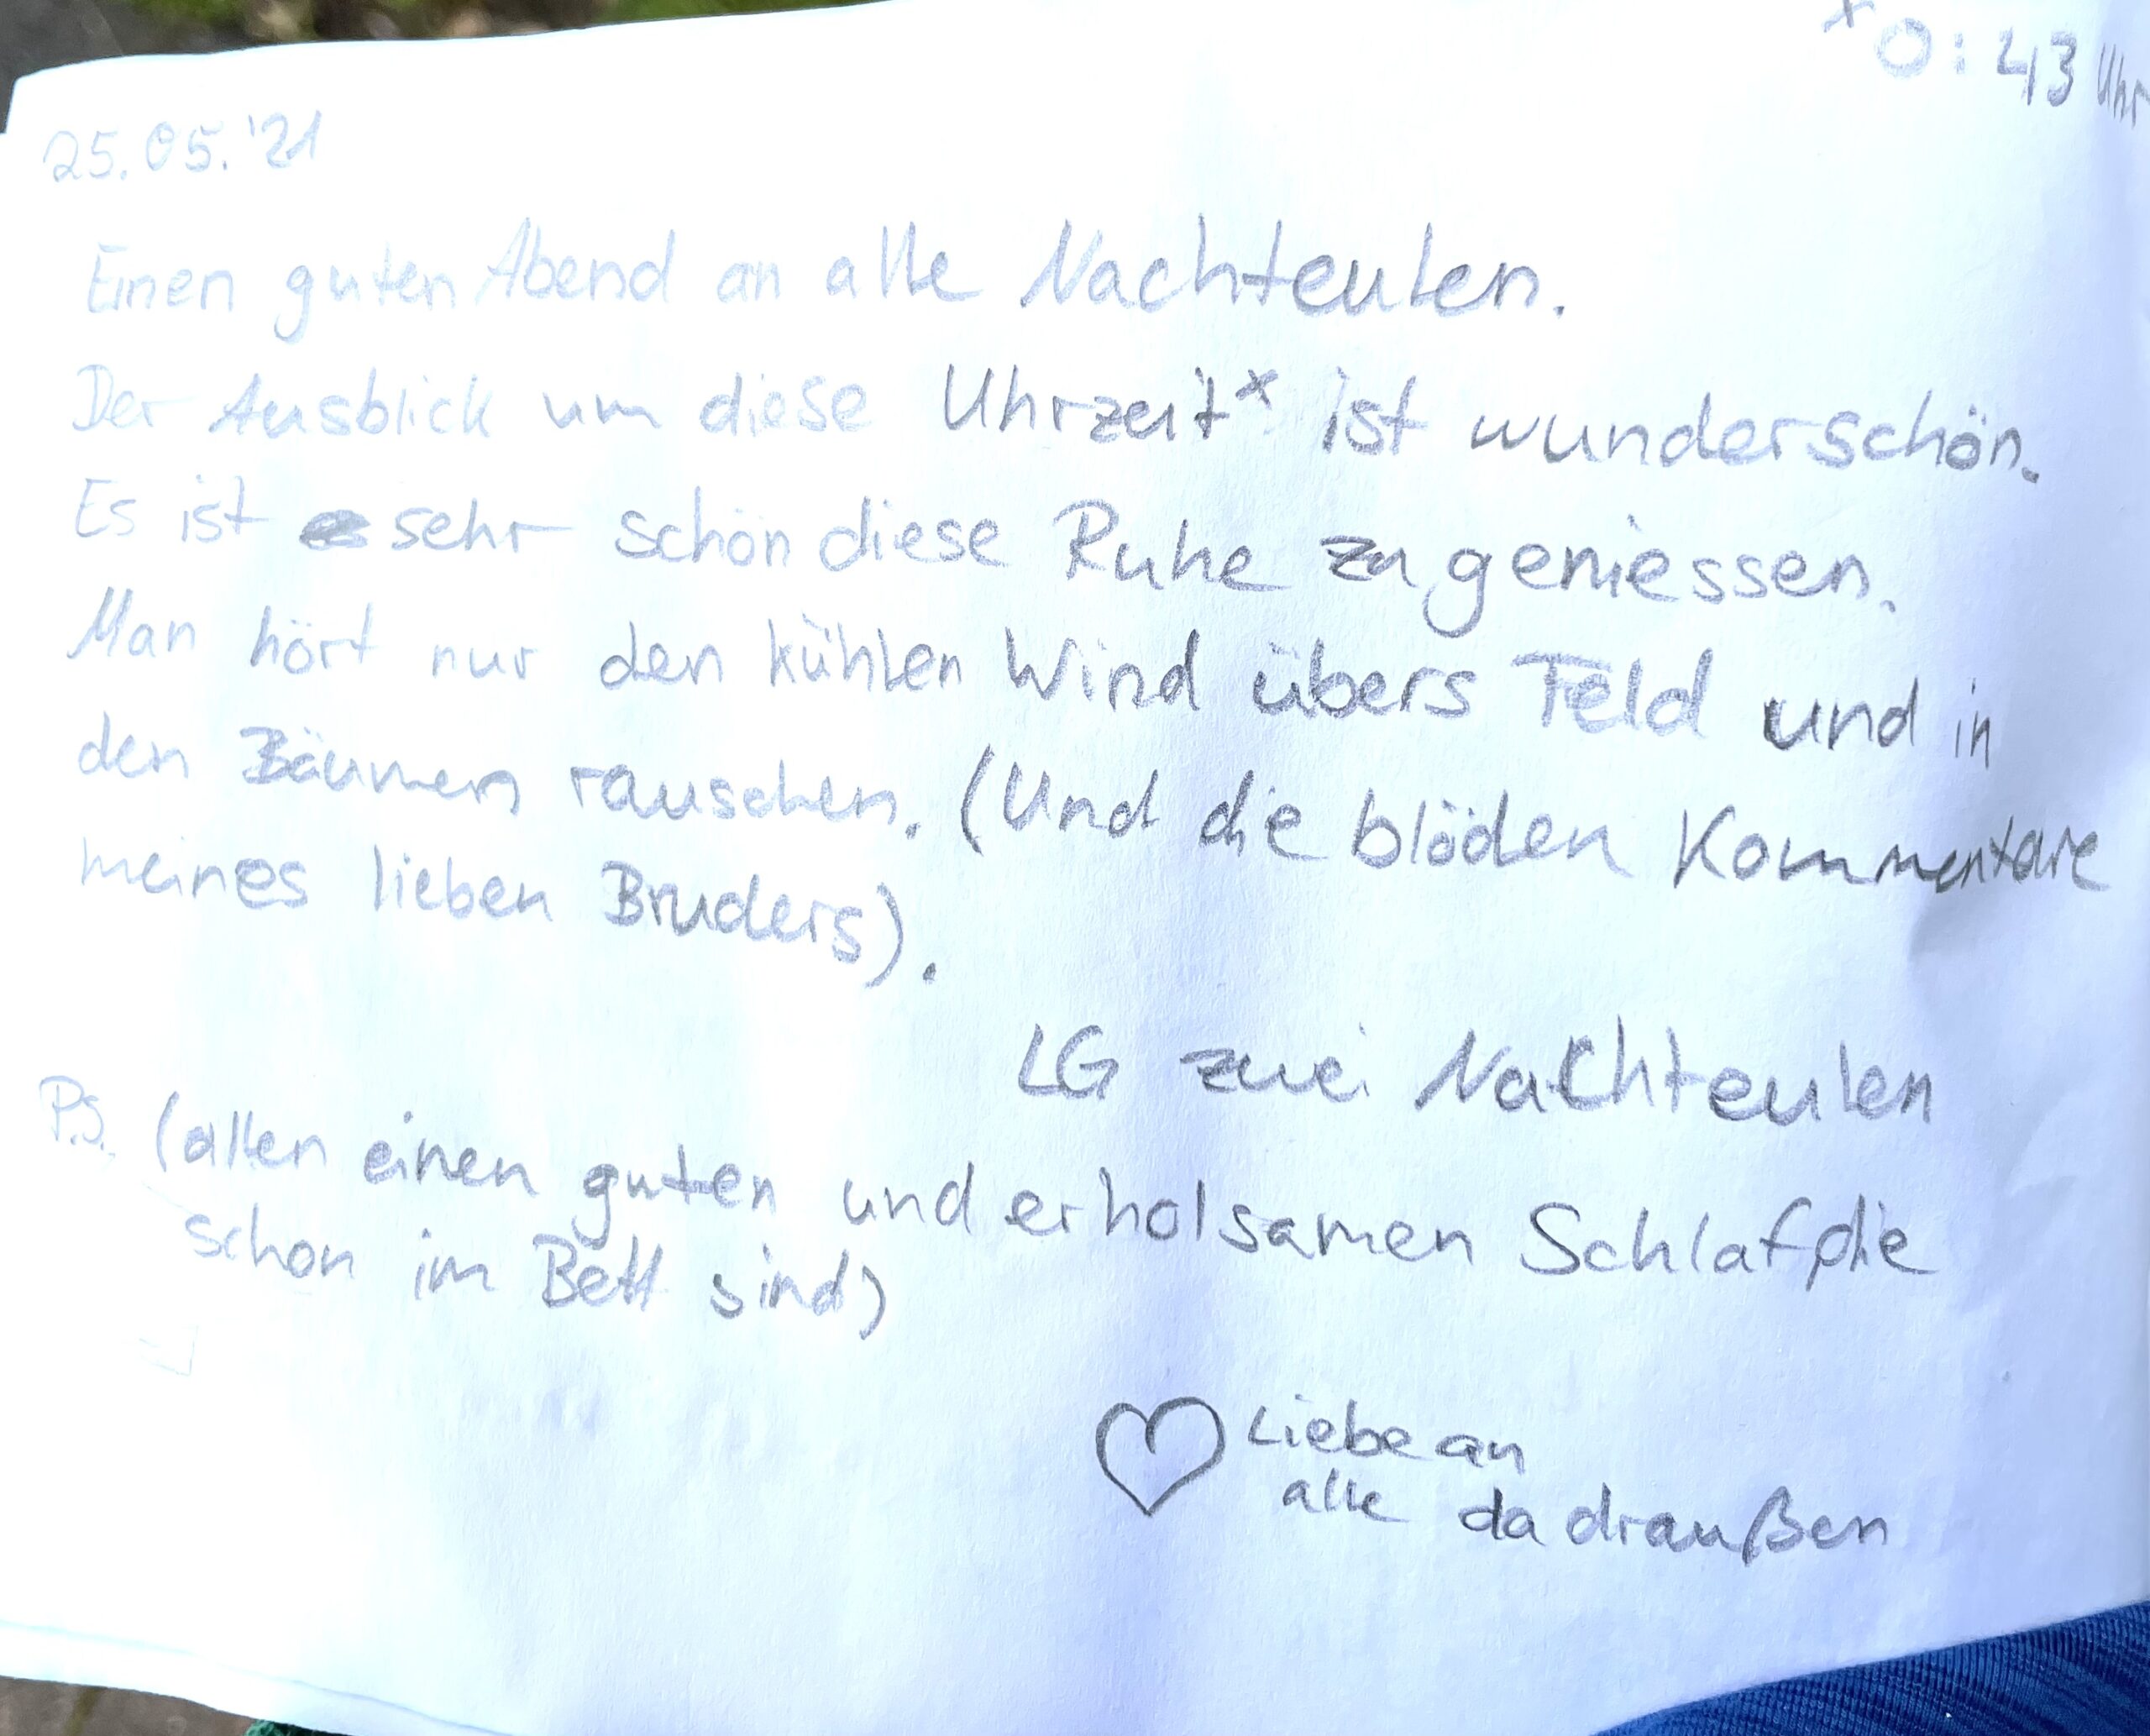 x 0:43 Uhr
25.05.'21
Einen guten Abend an alle Nachteulen.
Der Ausblick um diese Uhrzeit x ist wunderschön.
Es ist sehr schön diese Ruhe zu geniessen.
Man hört nur den kühlen Wind übers Feld und in
den Bäumen rauschen. (Und die blöden Kommentare
meines lieben Bruders).
LG zwei Nachteulen
P.S. (allen einen guten und erholsamen Schlaf, die
schon im Bett sind)
Liebe an
alle da draußen